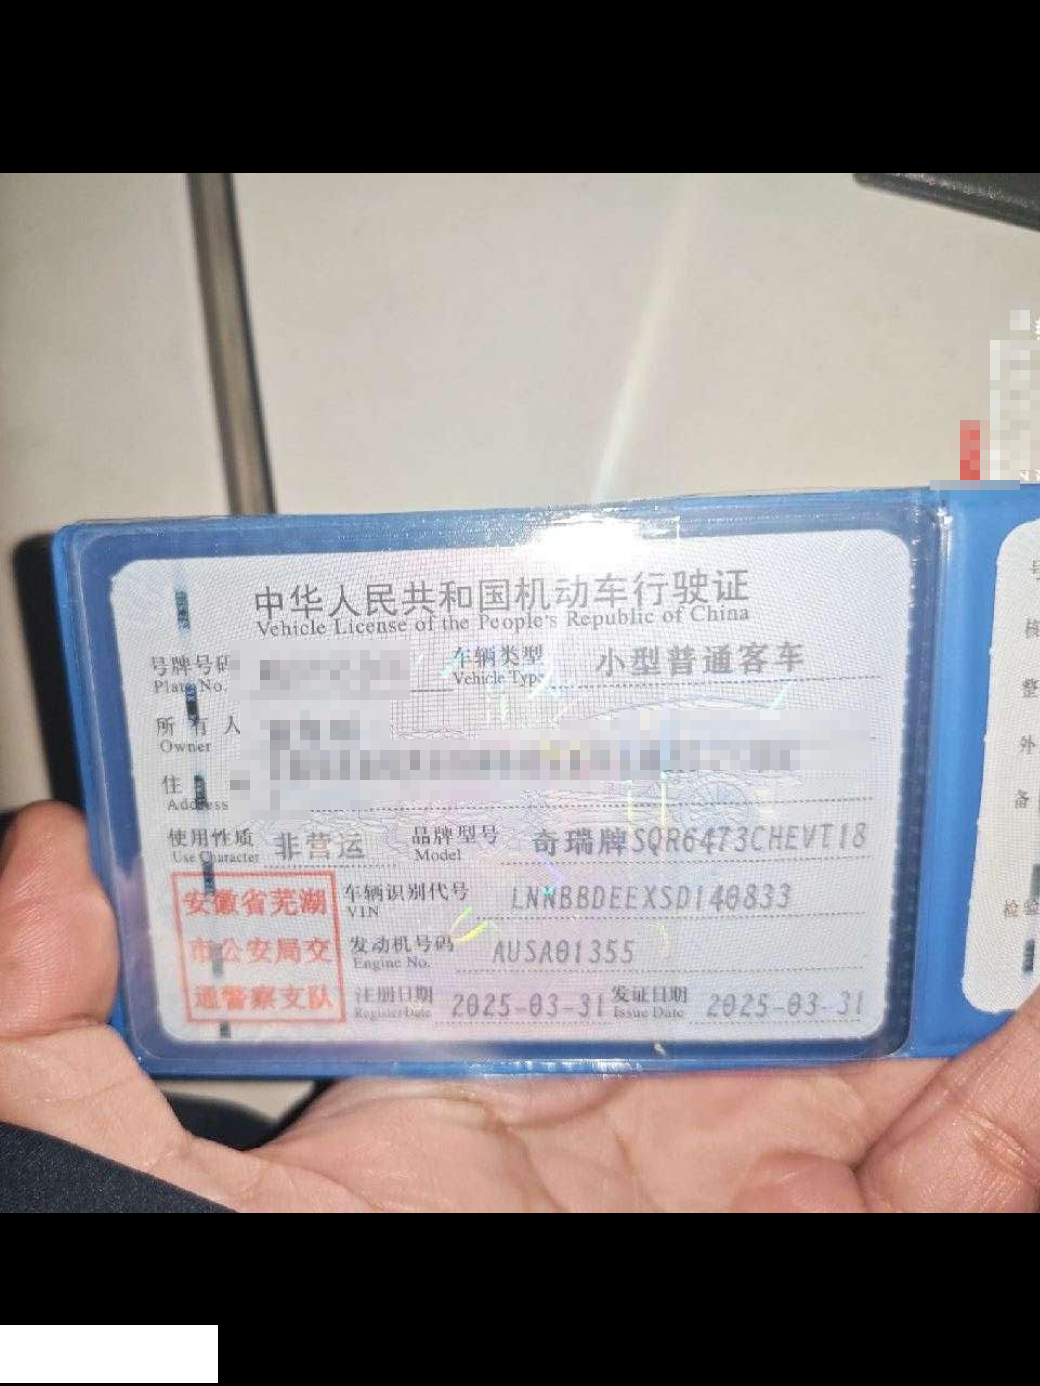 中华人民共和国机动车行驶证
Vehicle License of the People's Republic of China
号牌号码
Plate No.
车辆类型 小型普通客车
Vehicle Type
所有人
Owner
住
Address
使用性质 非营运
Use Character
品牌型号 奇瑞牌SQR6473CHEVT18
Model
安徽省芜湖
市公安局交
通警察支队
车辆识别代号 LNNBBDEEXSD140833
VIN
发动机号码 AUSA01355
Engine No.
注册日期 2025-03-31
Register Date
发证日期 2025-03-31
Issue Date
号
核
整
外
备
检验